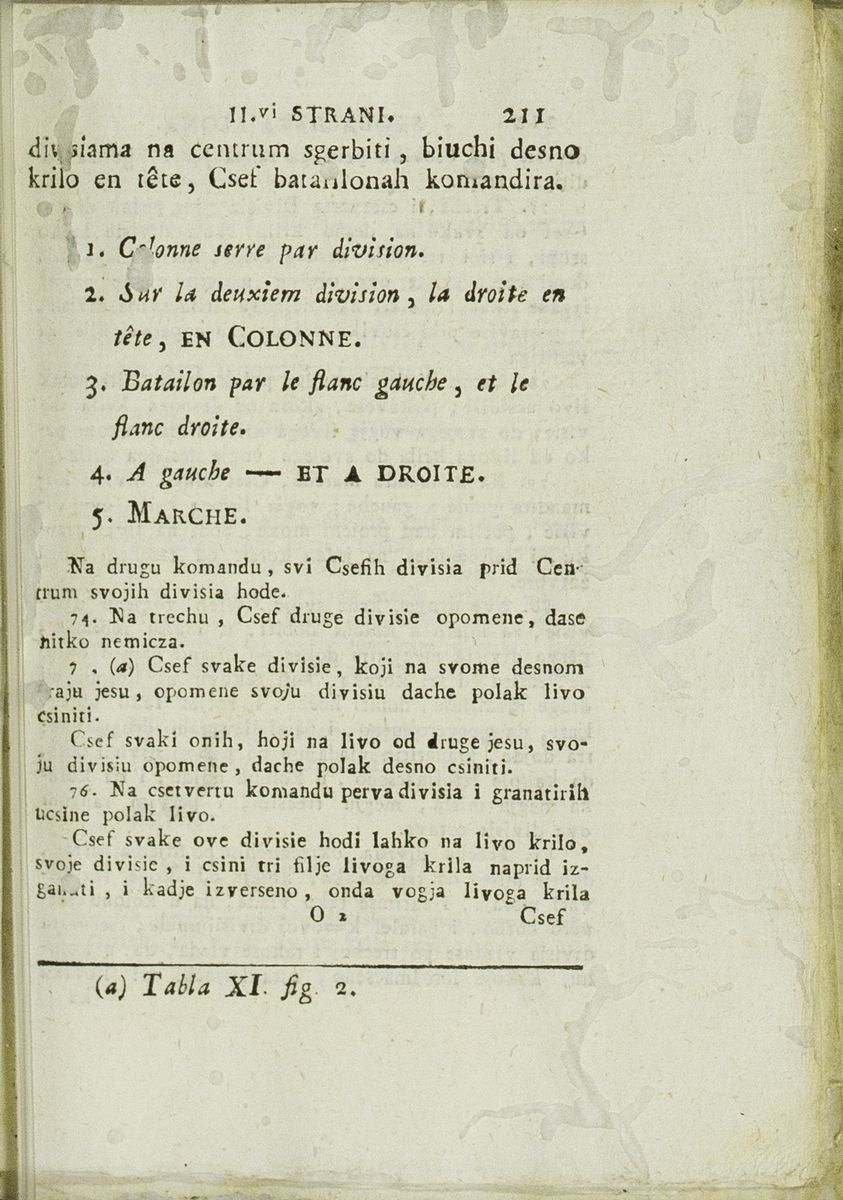 II.vi STRANI. 211
divisiama na centrum sgerbiti, biuchi desno
krilo en tête, Csef bataillonah komandira.
1. Colonne serre par division.
2. Sur la deuxiem division, la droite en
tête, EN COLONNE.
3. Batailon par le flanc gauche, et le
flanc droite.
4. A gauche — ET A DROITE.
5. MARCHE.
Na drugu komandu, svi Csefih divisia prid Cen-
trum svojih divisia hode.
74. Na trechu, Csef druge divisie opomene, dase
nitko nemicza.
7 . (a) Csef svake divisie, koji na svome desnom
raju jesu, opomene svoju divisiu dache polak livo
csiniti.
Csef svaki onih, hoji na livo od druge jesu, svo-
ju divisiu opomene, dache polak desno csiniti.
76. Na csetvertu komandu perva divisia i granatirih
ucsine polak livo.
Csef svake ove divisie hodi lahko na livo krilo,
svoje divisie, i csini tri filje livoga krila naprid iz-
, i kadje izverseno, onda vogja livoga krila
O 2 Csef
(a) Tabla XI. fig. 2.